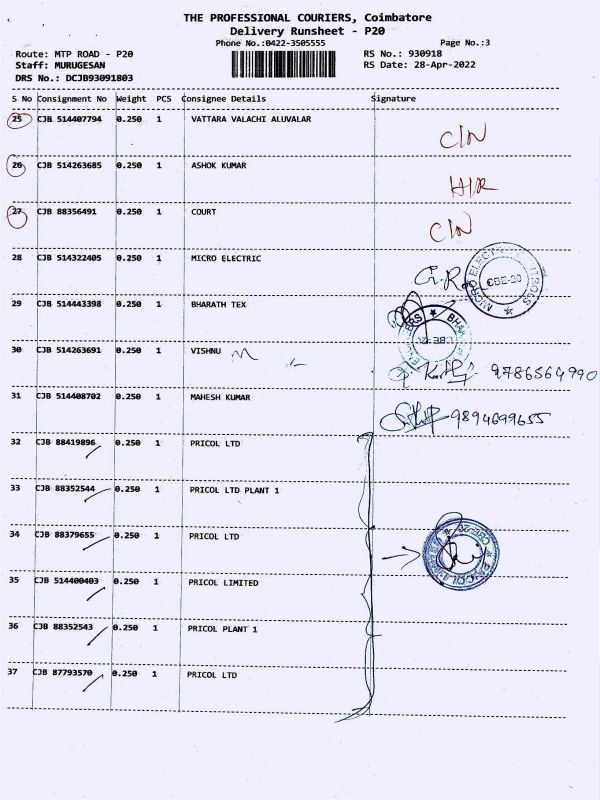 THE PROFESSIONAL COURIERS, Coimbatore
Delivery Runsheet - P20
Phone No.:0422-3505555
Page No.:3
Route: MTP ROAD - P20
RS No.: 930918
Staff: MURUGESAN
RS Date: 28-Apr-2022
DRS No.: DCJB93091803
S No Consignment No Weight PCS Consignee Details Signature
25 CJB 514407794 0.250 1 VATTARA VALACHI ALUVALAR
C/N
26 CJB 514263685 0.250 1 ASHOK KUMAR
27 CJB 88356491 0.250 1 COURT
C/N
28 CJB 514322405 0.250 1 MICRO ELECTRIC
CBE-20
29 CJB 514443398 0.250 1 BHARATH TEX
30 CJB 514263691 0.250 1 VISHNU
9786564990
31 CJB 514408702 0.250 1 MAHESH KUMAR
9894699655
32 CJB 88419896 0.250 1 PRICOL LTD
33 CJB 88352544 0.250 1 PRICOL LTD PLANT 1
34 CJB 88379655 0.250 1 PRICOL LTD
35 CJB 514400403 0.250 1 PRICOL LIMITED
36 CJB 88352543 0.250 1 PRICOL PLANT 1
37 CJB 87793570 0.250 1 PRICOL LTD